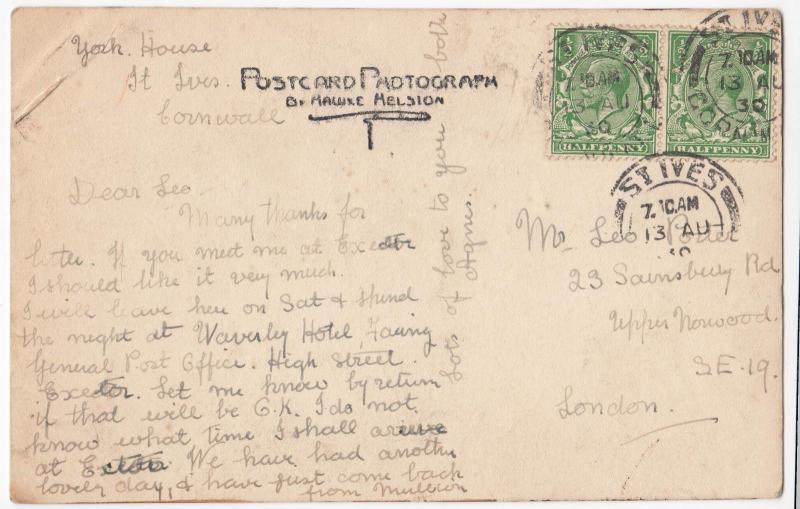 York. House
St Ives.
Cornwall
POSTCARD PHOTOGRAPH
BY HAWKE HELSTON
Dear Leo.
Many thanks for
letter. If you meet me at Exeter
I should like it very much.
I will leave here on Sat & spend
the night at Waverley Hotel, Facing
General Post Office. High Street.
Exeter. Let me know by return
if that will be O.K. I do not
know what time I shall arrive
at Exeter. We have had another
lovely day, & have just come back
from Mullion
Lots of love to you both
Agnes.
HALFPENNY
HALFPENNY
ST IVES
7.10AM
13 AU
30
CORNWALL
ST IVES
7.10AM
13 AU
30
ST IVES
7.10AM
13 AU
30
Mr Leo Porter
23 Sainsbury Rd
Upper Norwood.
S.E.19.
London.